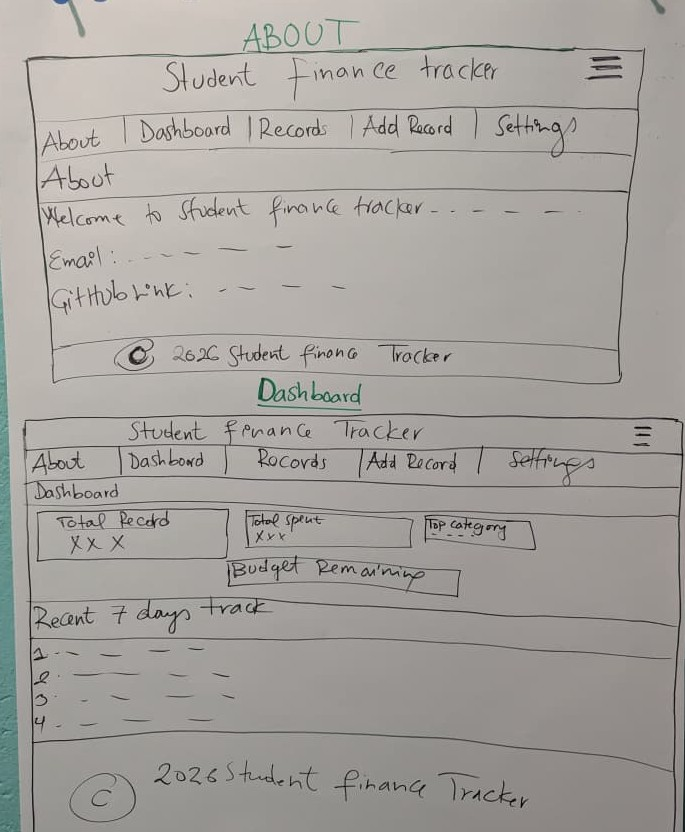 ABOUT
Student finance tracker
About | Dashboard | Records | Add Record | Settings
About
Welcome to student finance tracker
Email :
GitHub Link :
© 2026 Student finance Tracker
Dashboard
Student finance Tracker
About | Dashboard | Records | Add Record | Settings
Dashboard
Total Record
XXX
Total Spent
XXX
Top category
Budget Remaining
Recent 7 days track
1.
2.
3.
4.
© 2026 Student finance Tracker